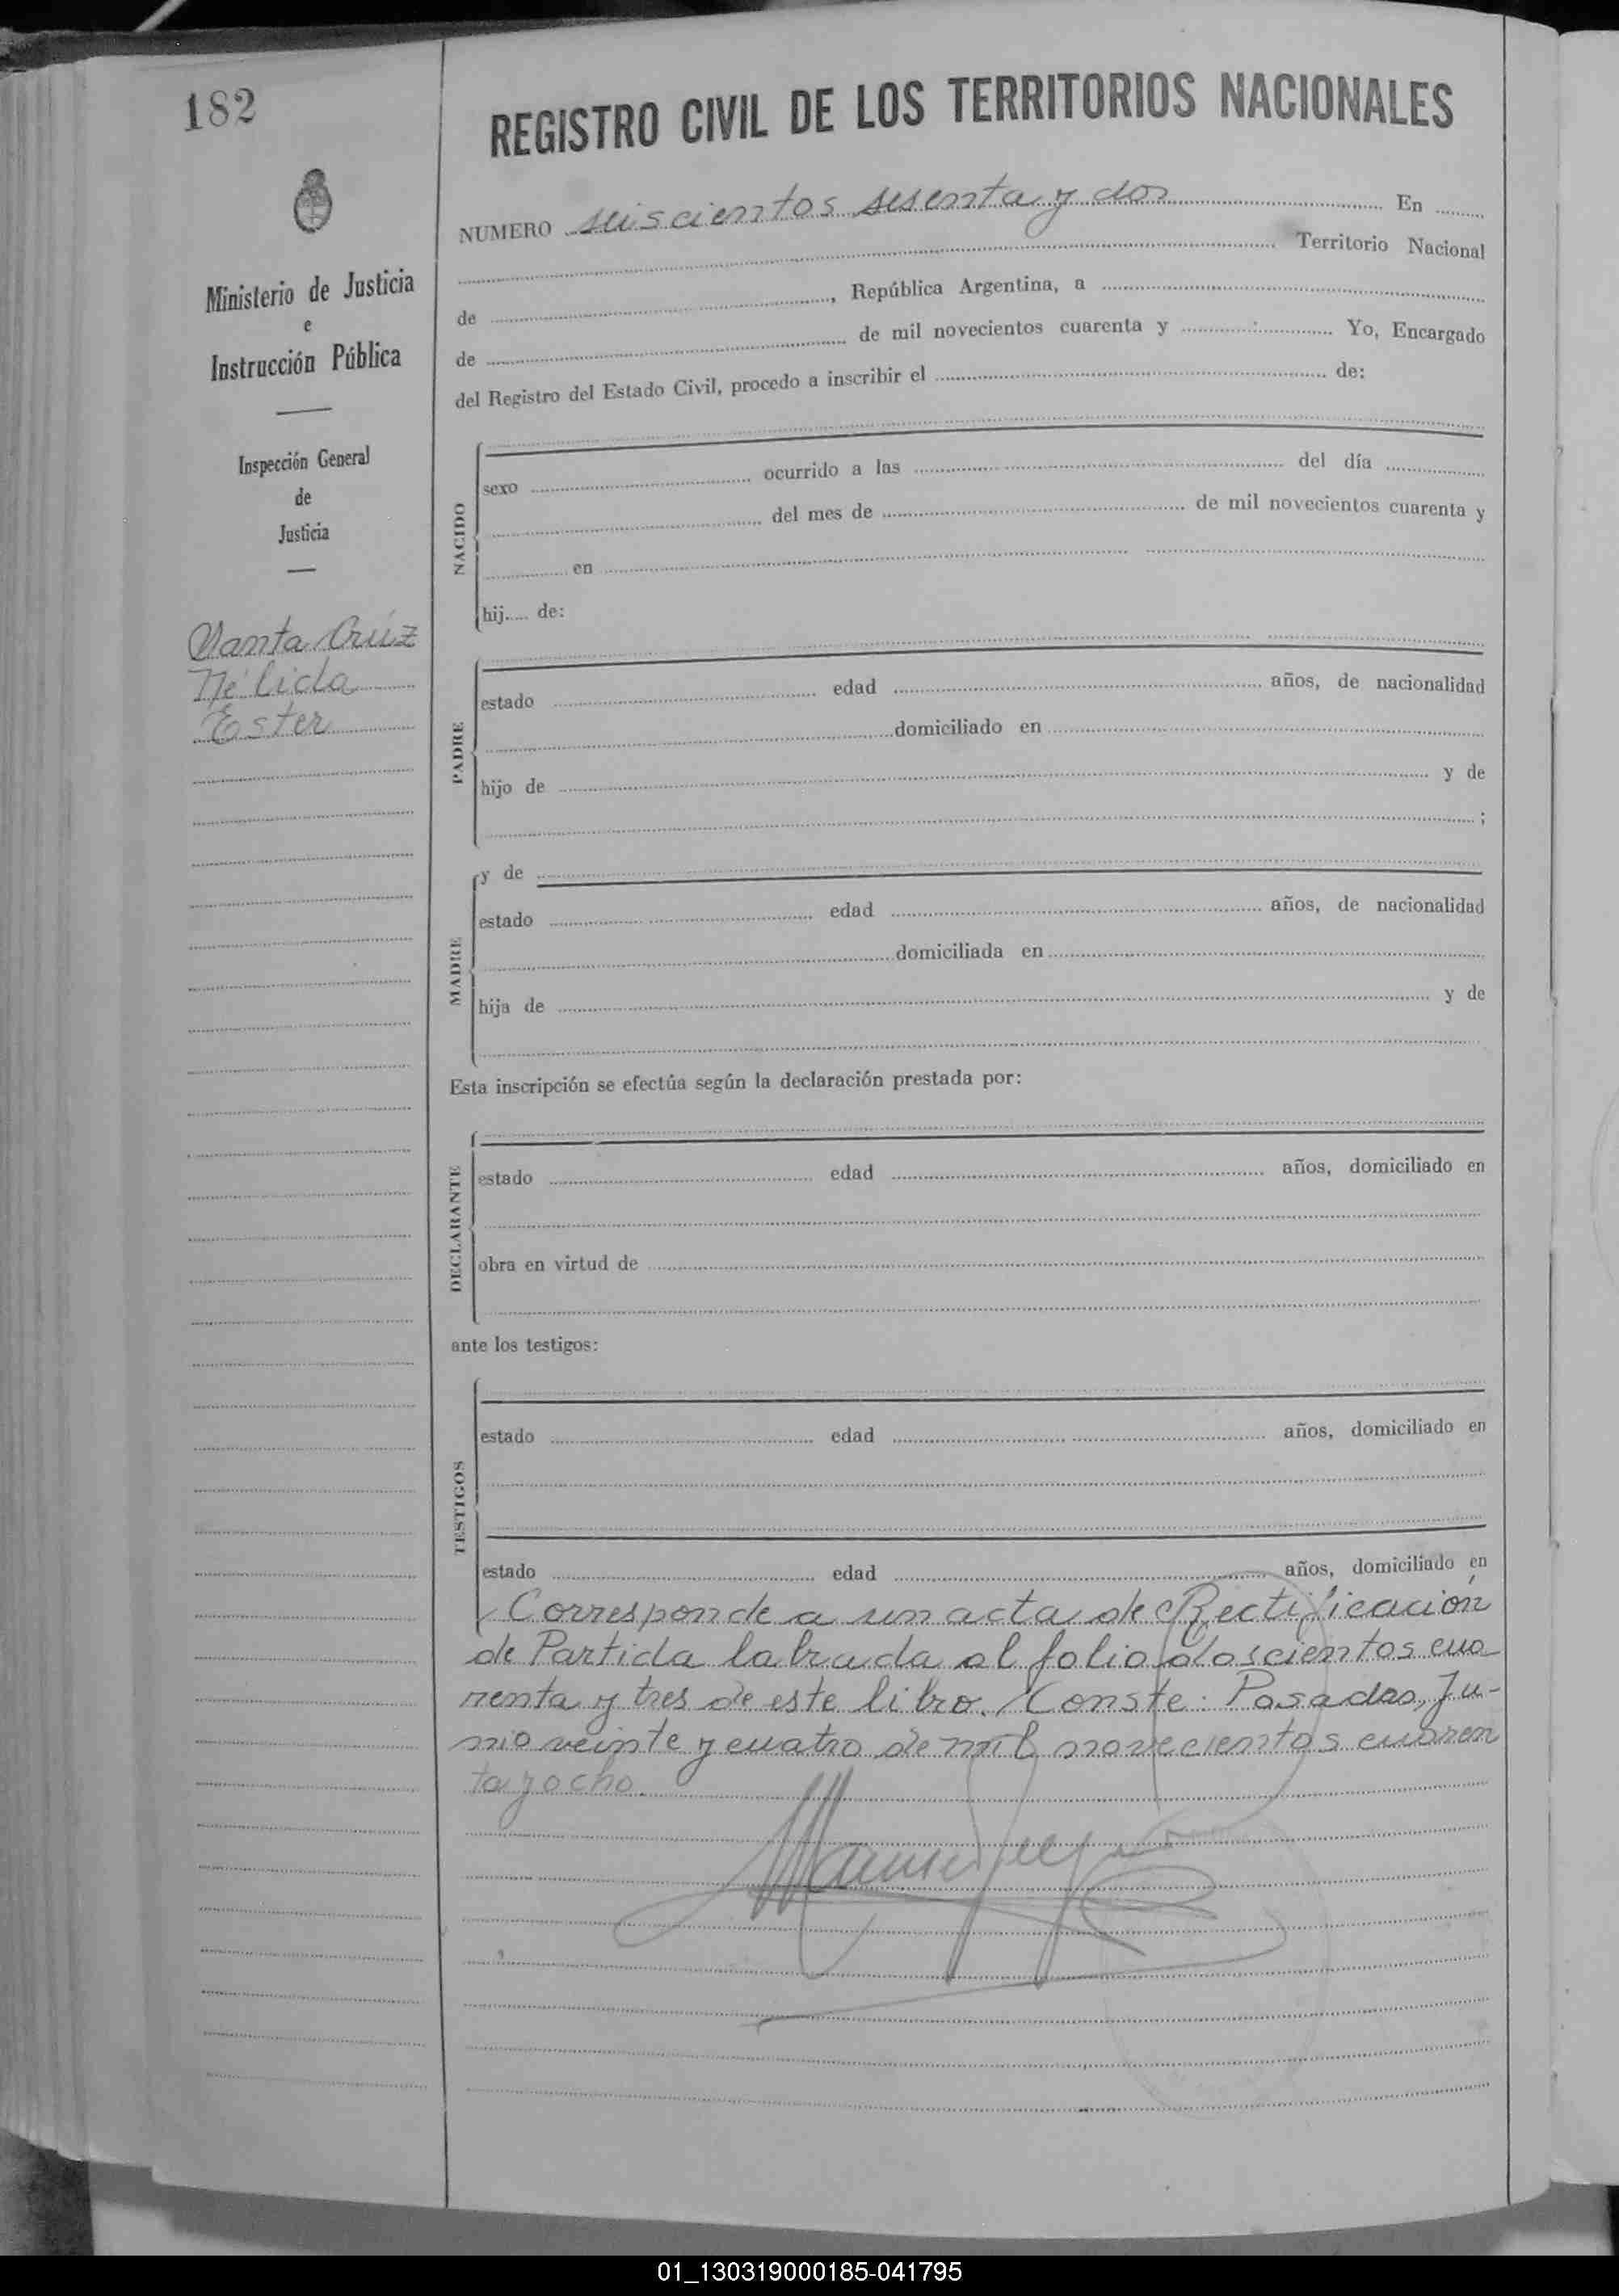 182
REGISTRO CIVIL DE LOS TERRITORIOS NACIONALES
Ministerio de Justicia
e
Instrucción Pública
Inspección General
de
Justicia
Santa Cruz
Nélida
Ester
NUMERO seiscientos sesenta y dos En
Territorio Nacional
de , República Argentina, a
de de mil novecientos cuarenta y Yo, Encargado
del Registro del Estado Civil, procedo a inscribir el de:
NACIDO
sexo ocurrido a las del día
del mes de de mil novecientos cuarenta y
en
hij de:
PADRE
estado edad años, de nacionalidad
domiciliado en
hijo de y de
;
MADRE
y de
estado edad años, de nacionalidad
domiciliada en
hija de y de
Esta inscripción se efectúa según la declaración prestada por:
DECLARANTE
estado edad años, domiciliado en
obra en virtud de
ante los testigos:
TESTIGOS
estado edad años, domiciliado en
estado edad años, domiciliado en
Corresponde a un acta de Rectificación
de Partida labrada al folio doscientos cua
renta y tres de este libro. Conste: Posadas, Ju-
nio veinte y cuatro de mil novecientos cuaren
ta y ocho.
01_130319000185-041795